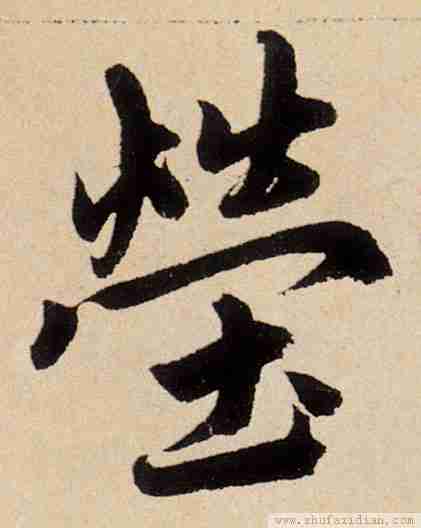 瑩
www.zhufazidian.com